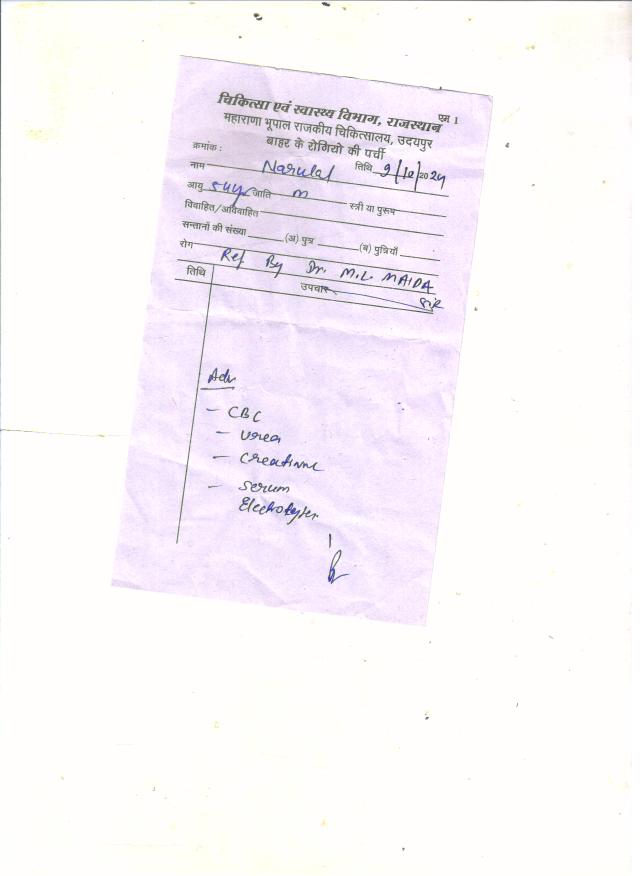 एम 1
चिकित्सा एवं स्वास्थ्य विभाग, राजस्थान
महाराणा भूपाल राजकीय चिकित्सालय, उदयपुर
बाहर के रोगियो की पर्ची
क्रमांक :
नाम Narulal तिथि 9/10/2024
आयु 54y जाति m स्त्री या पुरूष
विवाहित/अविवाहित
सन्तानों की संख्या (अ) पुत्र (ब) पुत्रियाँ
रोग Ref By Dr. M.L. MAIDA
Sir
तिथि उपचार
Adv
- CBC
- Urea
- Creatinine
- Serum
Electrolytes